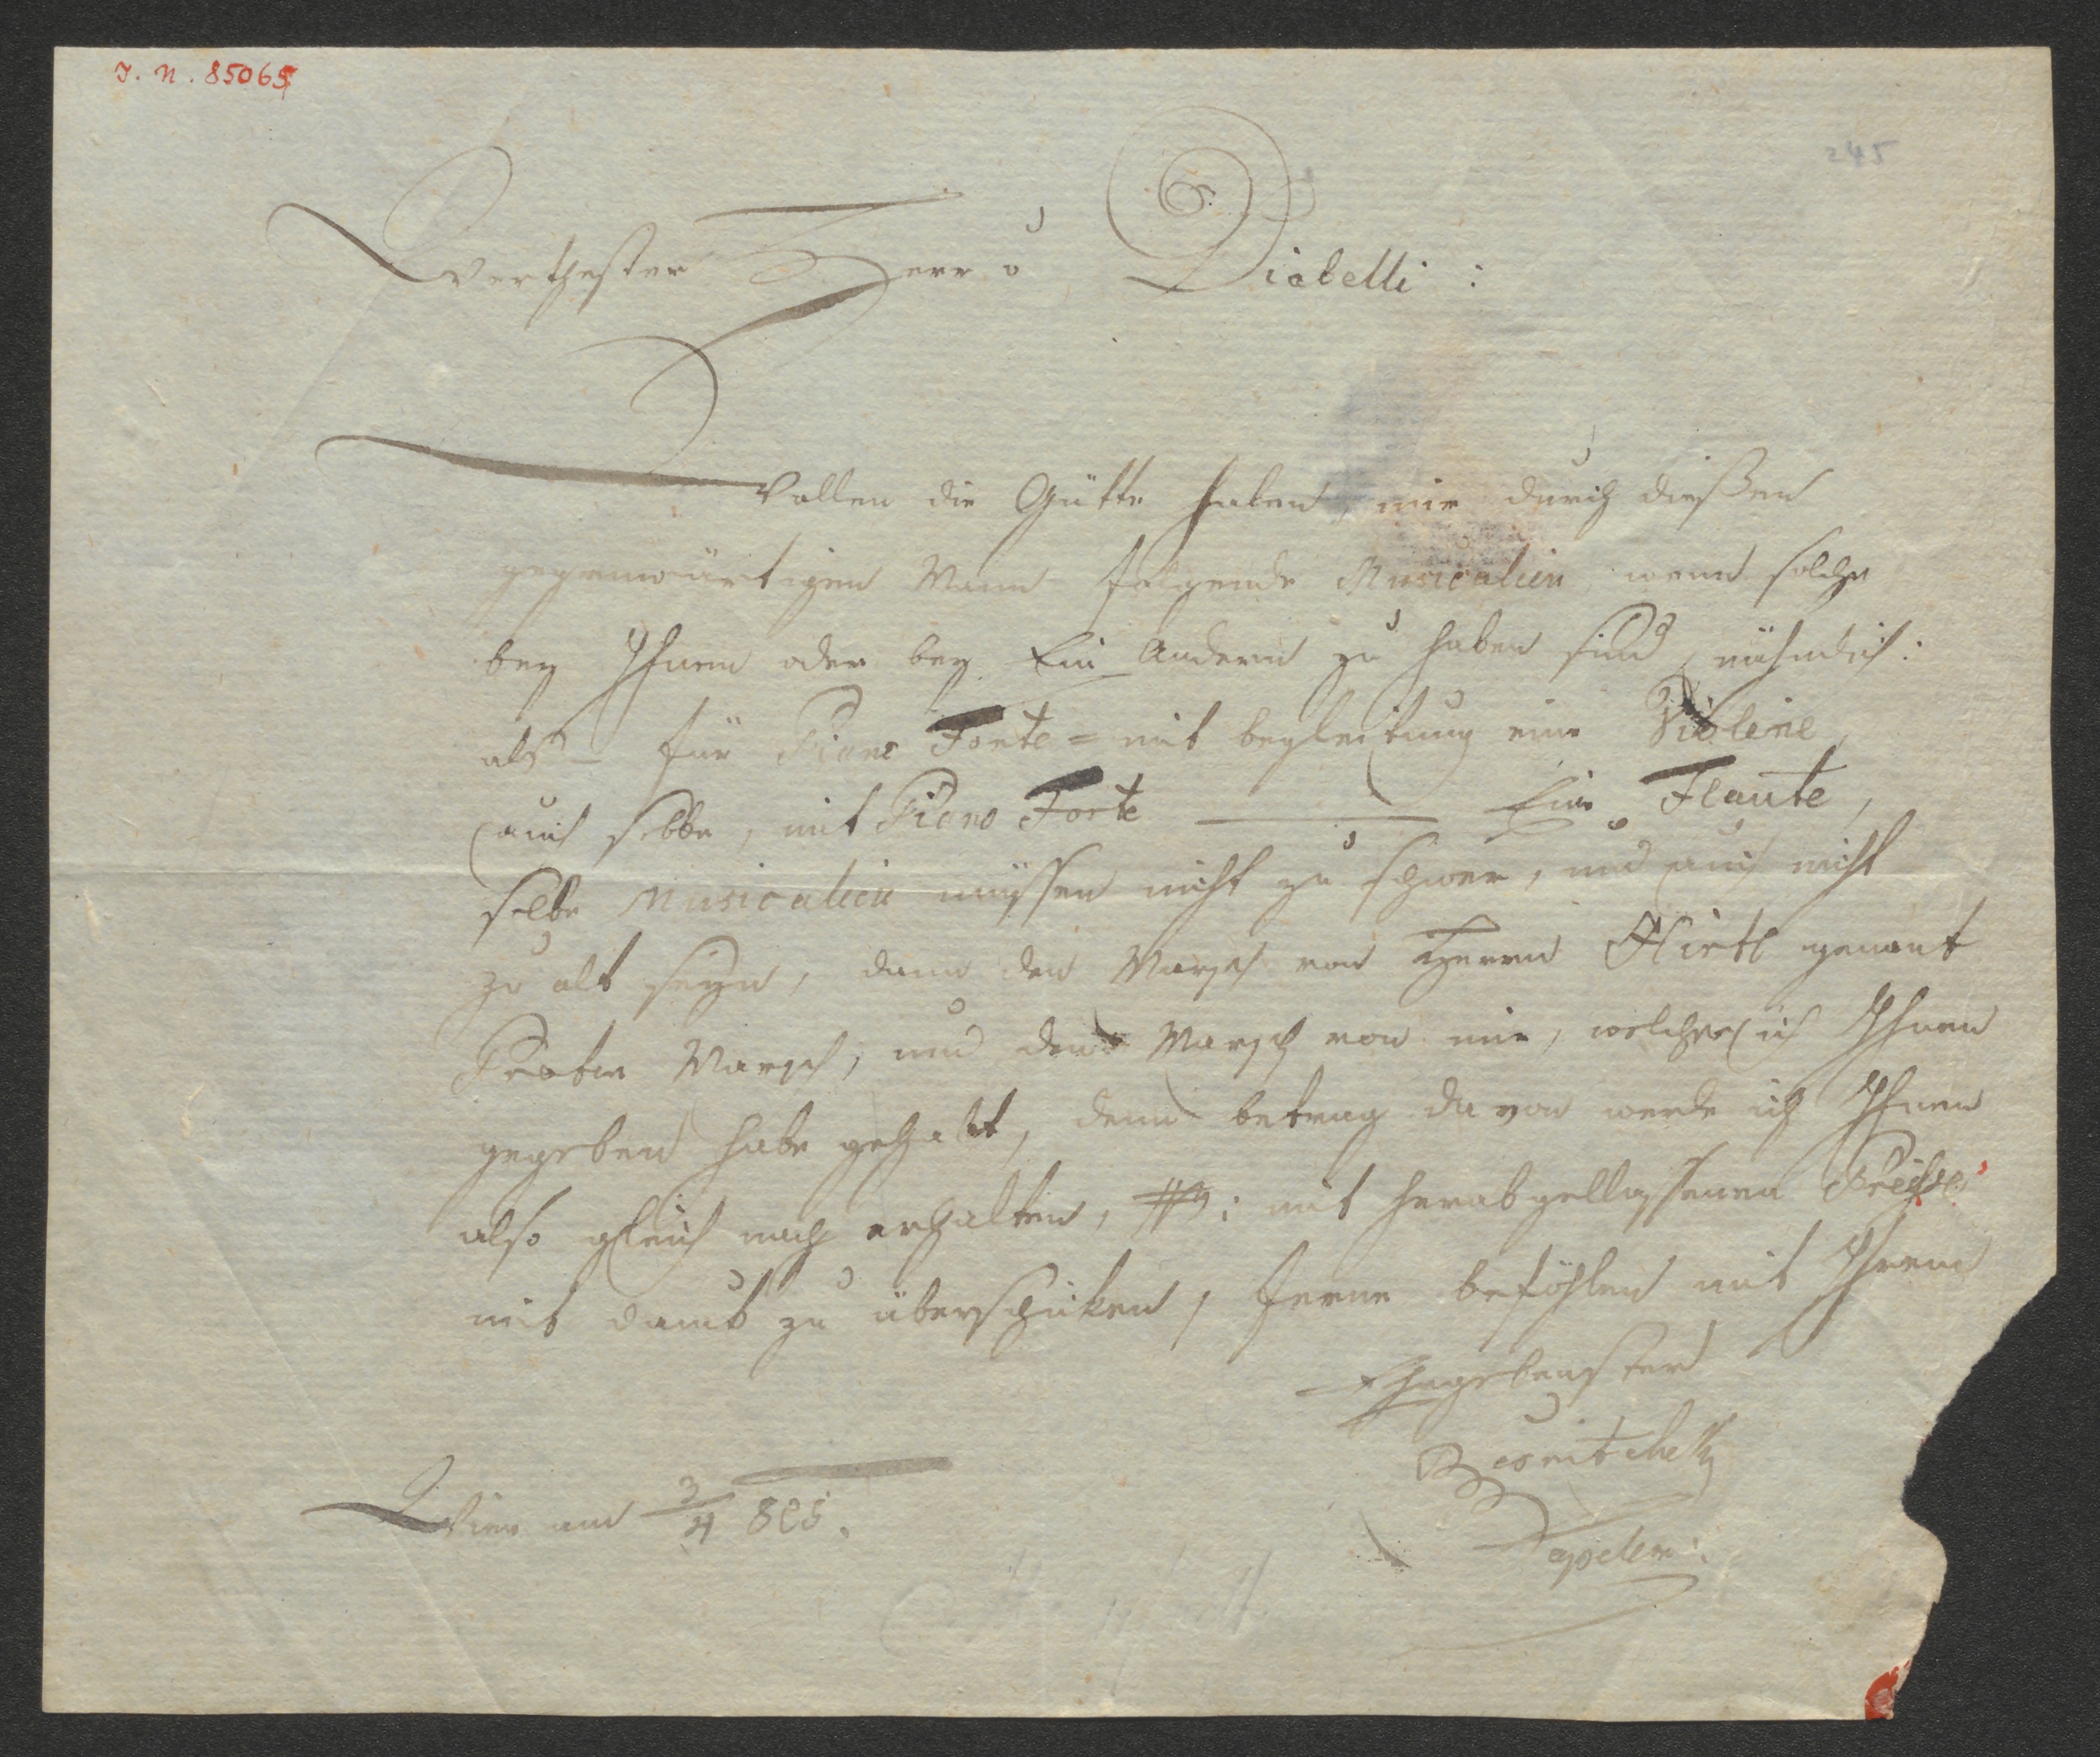 I. N. 85065
245
Werthester Herr v Diabelli :
Wollen die Gütte haben, mir durch dießen
gegenwärtigen Mann folgende Musicalien wenn solche
bey Ihnen oder bey Ein Andern zu haben sind, nähmlich:
als – für Piano Forte = mit begleitung eine Violine,
auch selbe, mit Piano Forte ——— Eine Flaute,
selbe Musicalien müssen nicht zu schwer, und auch nicht
zu alt seyn, dann den Marsch von Herrn Hirtl genant
Prater Marsch, und den Marsch von mir, welchen ich Ihnen
gegeben habe gehabt, denn betrag davon werde ich Ihnen
also gleich nach erhalten, : mit herabgellassenen Preiße
mit danck zu überschicken, ferner befohlen mit Ihrem
Ergebenster
Wien am 3/4 805.